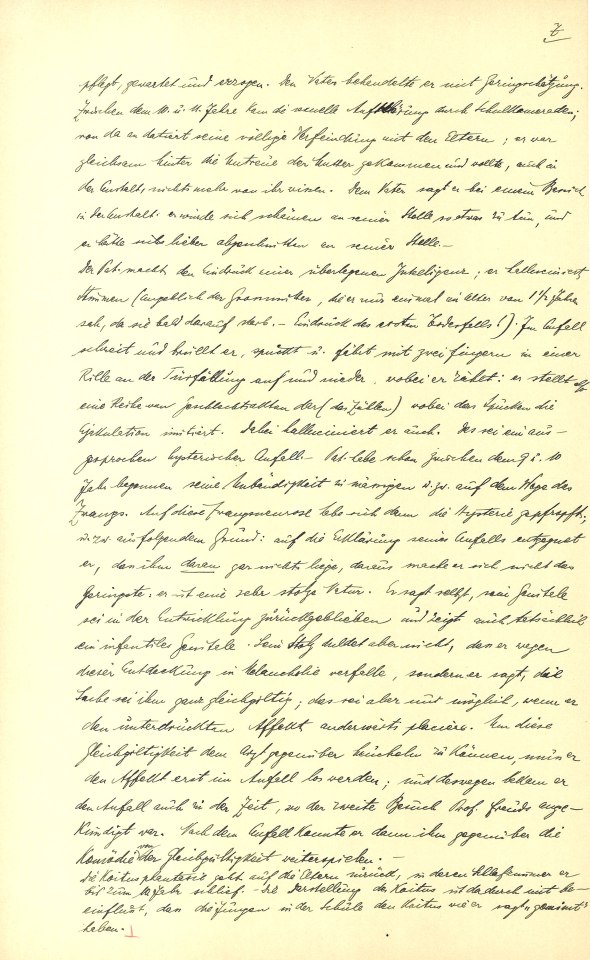 7
pflegt, gewartet und erzogen. Den Vater behandelte er mit Geringschätzung.
Zwischen dem 10. u. 11. Jahre kam die sexuelle Aufklärung durch Schulkameraden;
von da an datiert seine völlige Verfeindung mit den Eltern; er war
gleichsam hinter die Untreue der Mutter gekommen und wollte, auch in
der Anstalt, nichts mehr von ihr wissen. Dem Vater sagt er bei einem Besuch
in der Anstalt: er würde sich schämen an seiner Stelle so etwas zu tun, und
er hätte lieber abgeschnitten an seiner Stelle.–
Der Pat. macht den Eindruck einer überlegenen Intelligenz; er halluciniert
Stimmen (angeblich der Grossmutter, die er nur einmal im Alter von 1½ Jahre
sah, da sie bald darauf starb.– Eindruck des ersten Todesfalls!). Im Anfall
schreit und brüllt er, spuckt u. fährt mit zwei Fingern in einer
Rille an der Türfüllung auf und nieder, wobei er zählt: er stellt also
eine Reihe von Geschlechtsakten dar (das Zählen) wobei das Spucken die
Ejakulation imitiert. Dabei halluciniert er auch. Das sei ein aus-
gesprochen hysterischer Anfall.– Pat. habe schon zwischen dem 9. u. 10
Jahr begonnen seine Unbändigkeit zu mässigen u. zw. auf dem Wege des
Zwangs. Auf diese Zwangsneurose habe sich dann die Hysterie gepfropft;
u. zw. aus folgendem Grund: auf die Erklärung seines Anfalls entgegnet
er, dass ihm daran gar nichts liege, daraus mache er sich nicht das
Geringste. er ist eine sehr stolze Natur. Er sagt selbst, sein Genitale
sei in der Entwicklung zurückgeblieben und zeigt auch tatsächlich
ein infantiles Genitale. Sein Stolz duldet aber nicht, dass er wegen
dieser Entdeckung in Melancholie verfalle, sondern er sagt, die
Sache sei ihm ganz gleichgiltig; das sei aber nur möglich, wenn er
den unterdrückten Affekt anderwärts placiere. Um diese
Gleichgiltigkeit dem Arzt gegenüber heucheln zu können, muss er
den Affekt erst im Anfall los werden; und deswegen bekam er
den Anfall auch in der Zeit, wo der zweite Besuch Prof. Freuds ange-
kündigt war. Nach dem Anfall konnte er dann ihm gegenüber die
Komödie von der Gleichgiltigkeit weiterspielen.–
Die Koitusphantasie geht auf die Eltern zurück, in deren Schlafzimmer er
bis zum 10. Jahr schlief. Die Darstellung des Koitus ist dadurch mit be-
einflusst, dass die Jungen in der Schule den Koitus wie er sagt „gemimt"
haben.